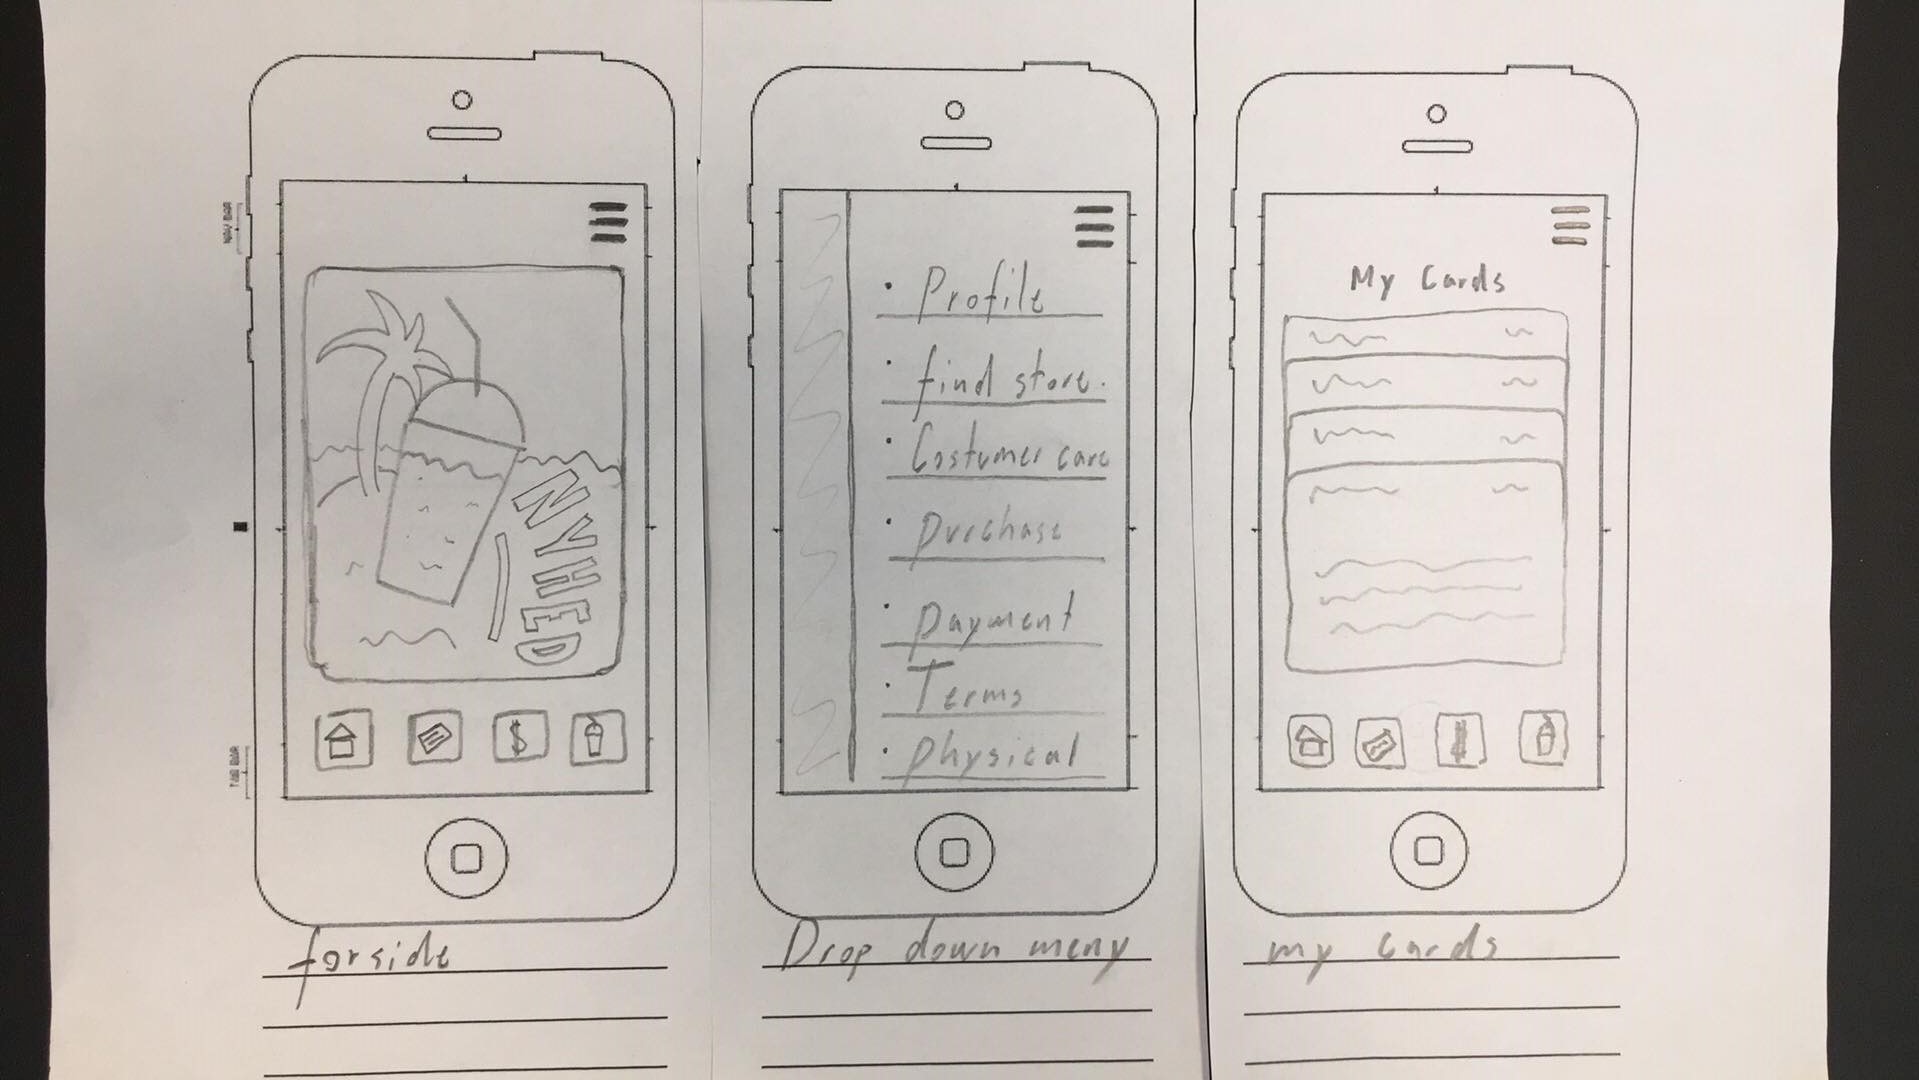 NYHED
forside
• Profile
• find store.
• Costumer care
• purchase
• payment
• Terms
• physical
Drop down meny
My Cards
my cards